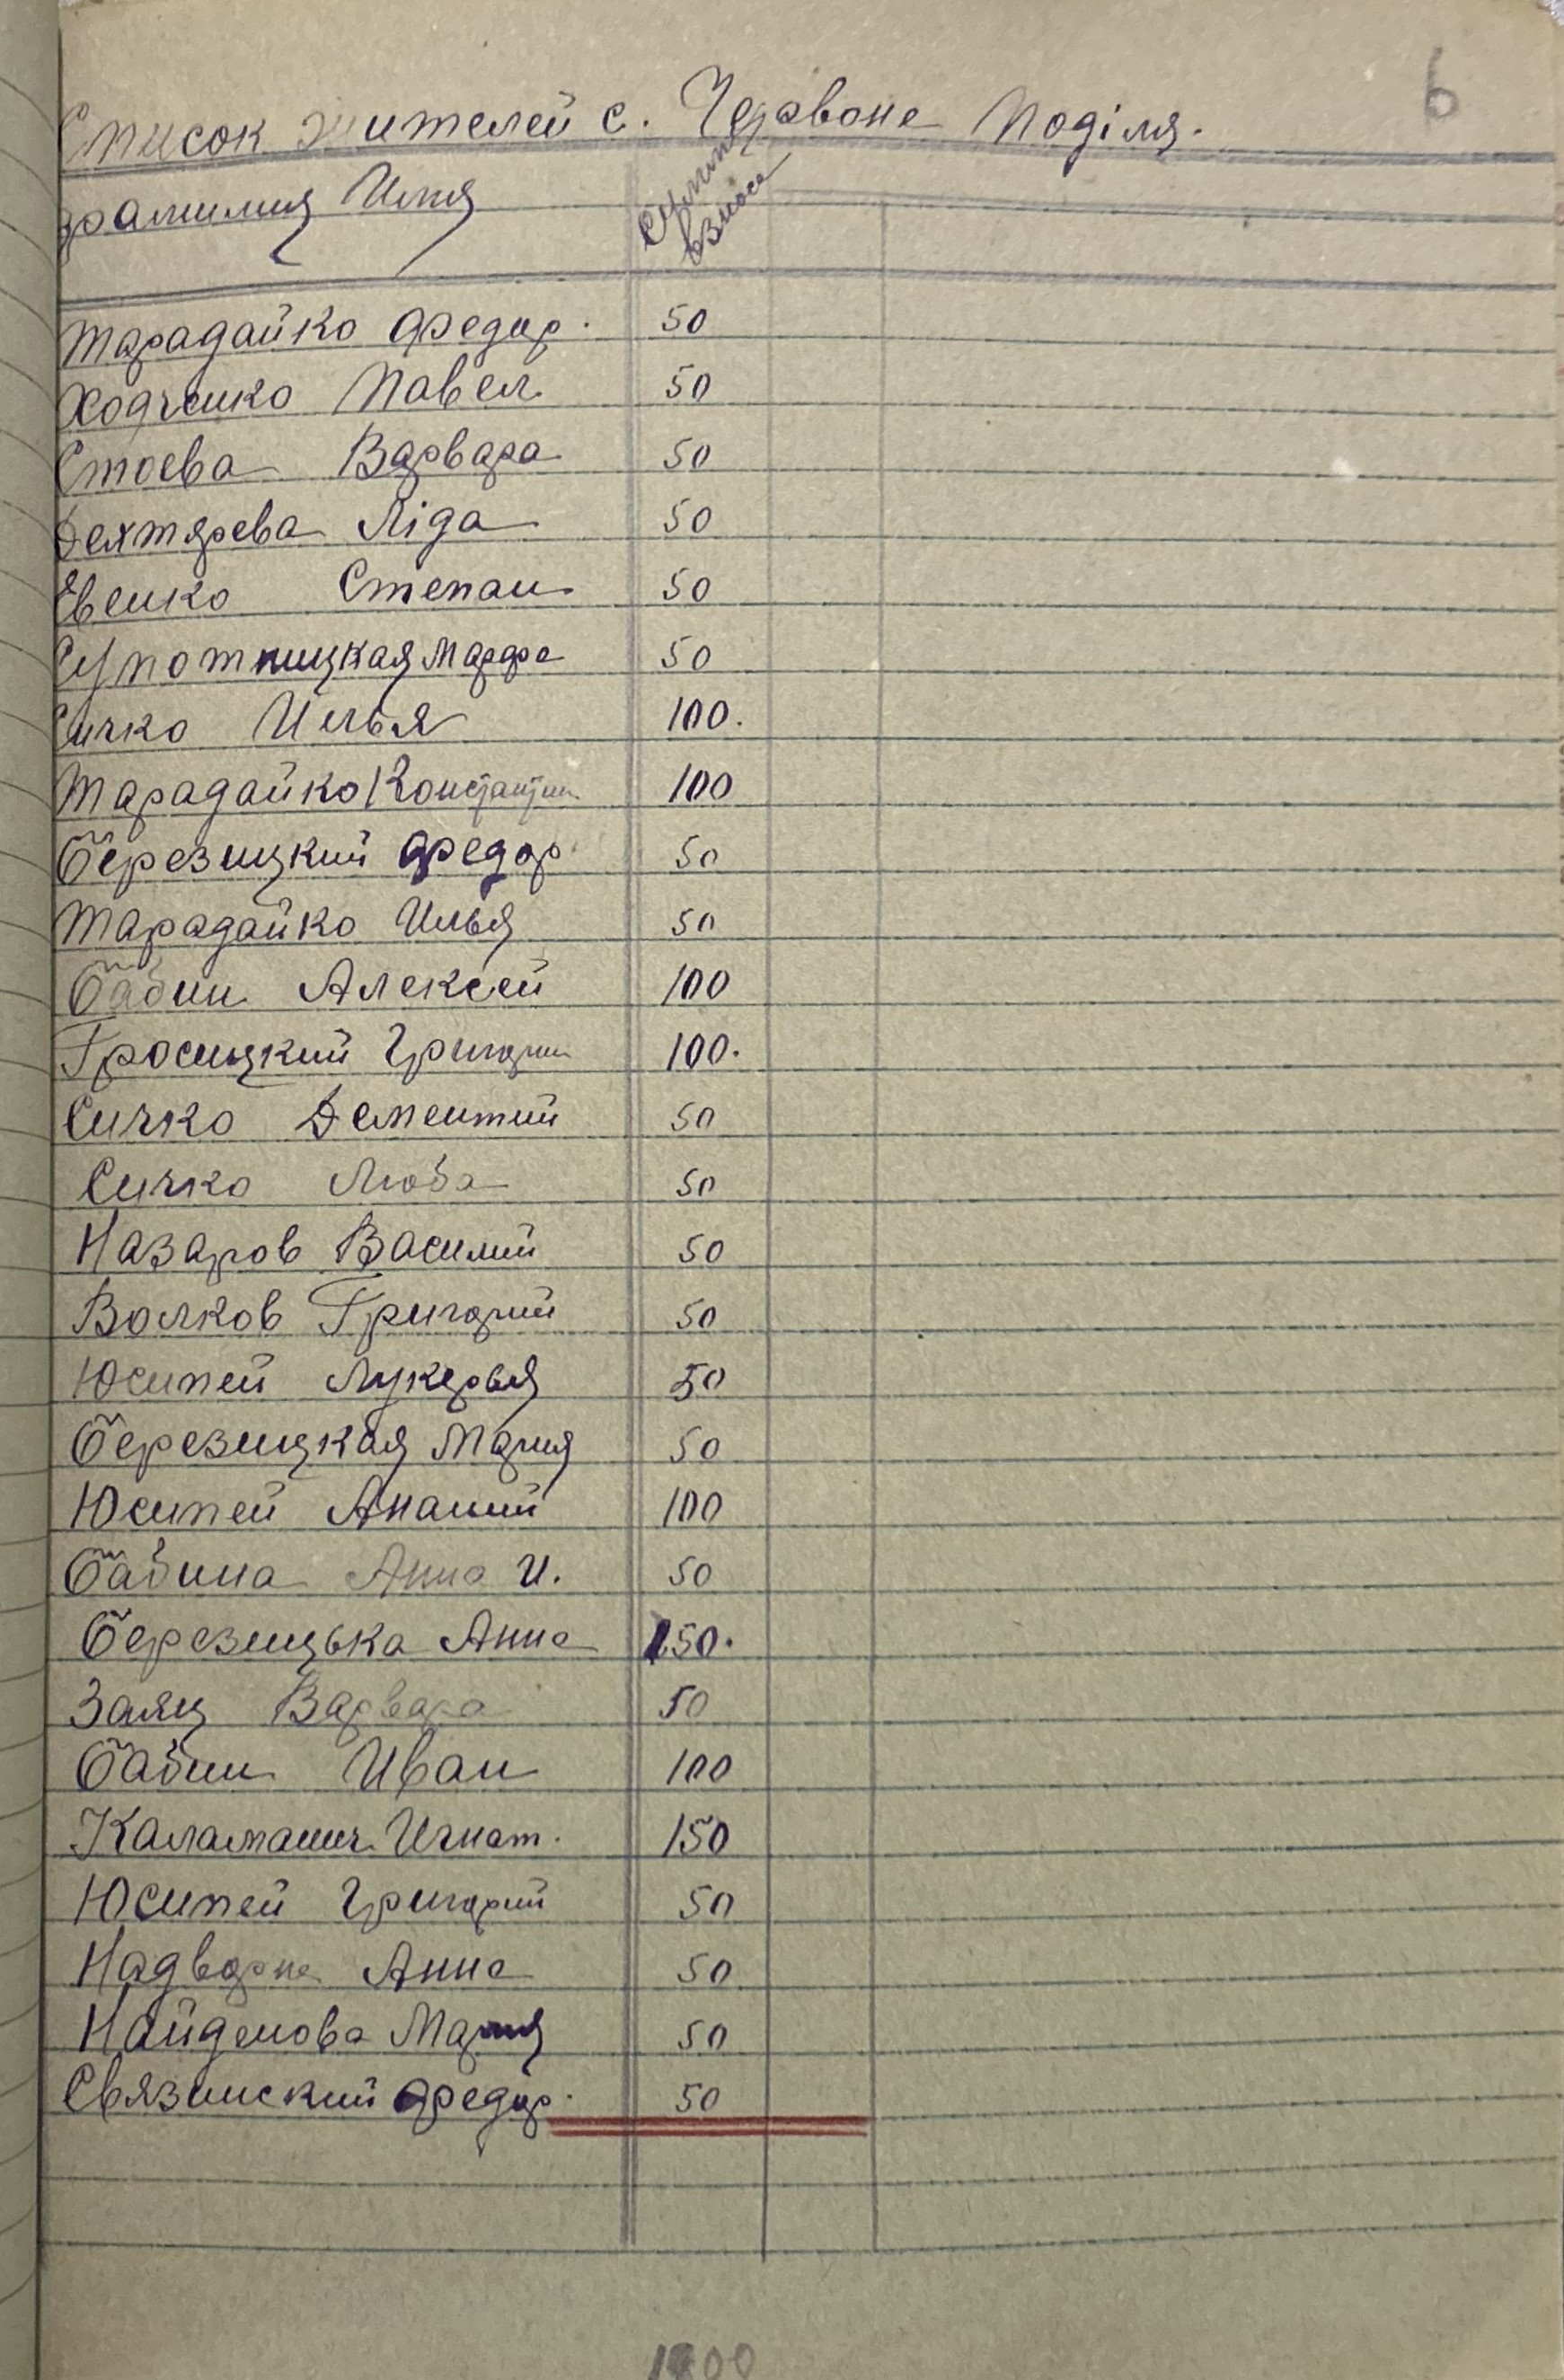 6
Список жителей с. Червоне Поділя.
Фамилия Имя Сумма взноса
Тарадайко Федор. 50
Ходченко Павел 50
Стоева Варвара 50
Дехтярева Ліда 50
Евенко Степан 50
Супотницкая Марфа 50
Сичко Илья 100.
Тарадайко Константин 100
Березицкий Федор. 50
Тарадайко Илья 50
Бабин Алексей 100
Гросицкий Григорий 100.
Сичко Дементий 50
Сичко Люба 50
Назаров Василий 50
Волков Григорий 50
Юсипей Лукерья 50
Березицкая Мария 50
Юсипей Ананий 100
Бабина Анна И. 50
Березицька Анна 150.
Заяц Варвара 50
Бабин Иван 100
Каламанич Игнат. 150
Юсипей Григорий 50
Надворна Анна 50
Найденова Мария 50
Связинский Федор. 50